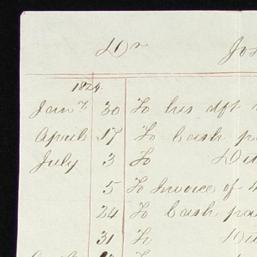 Dr
1824
Jany 30 To his dft
April 17 To Cash pa
July 3 To Di
5 To Invoice of
24 To Cash paid
31 To